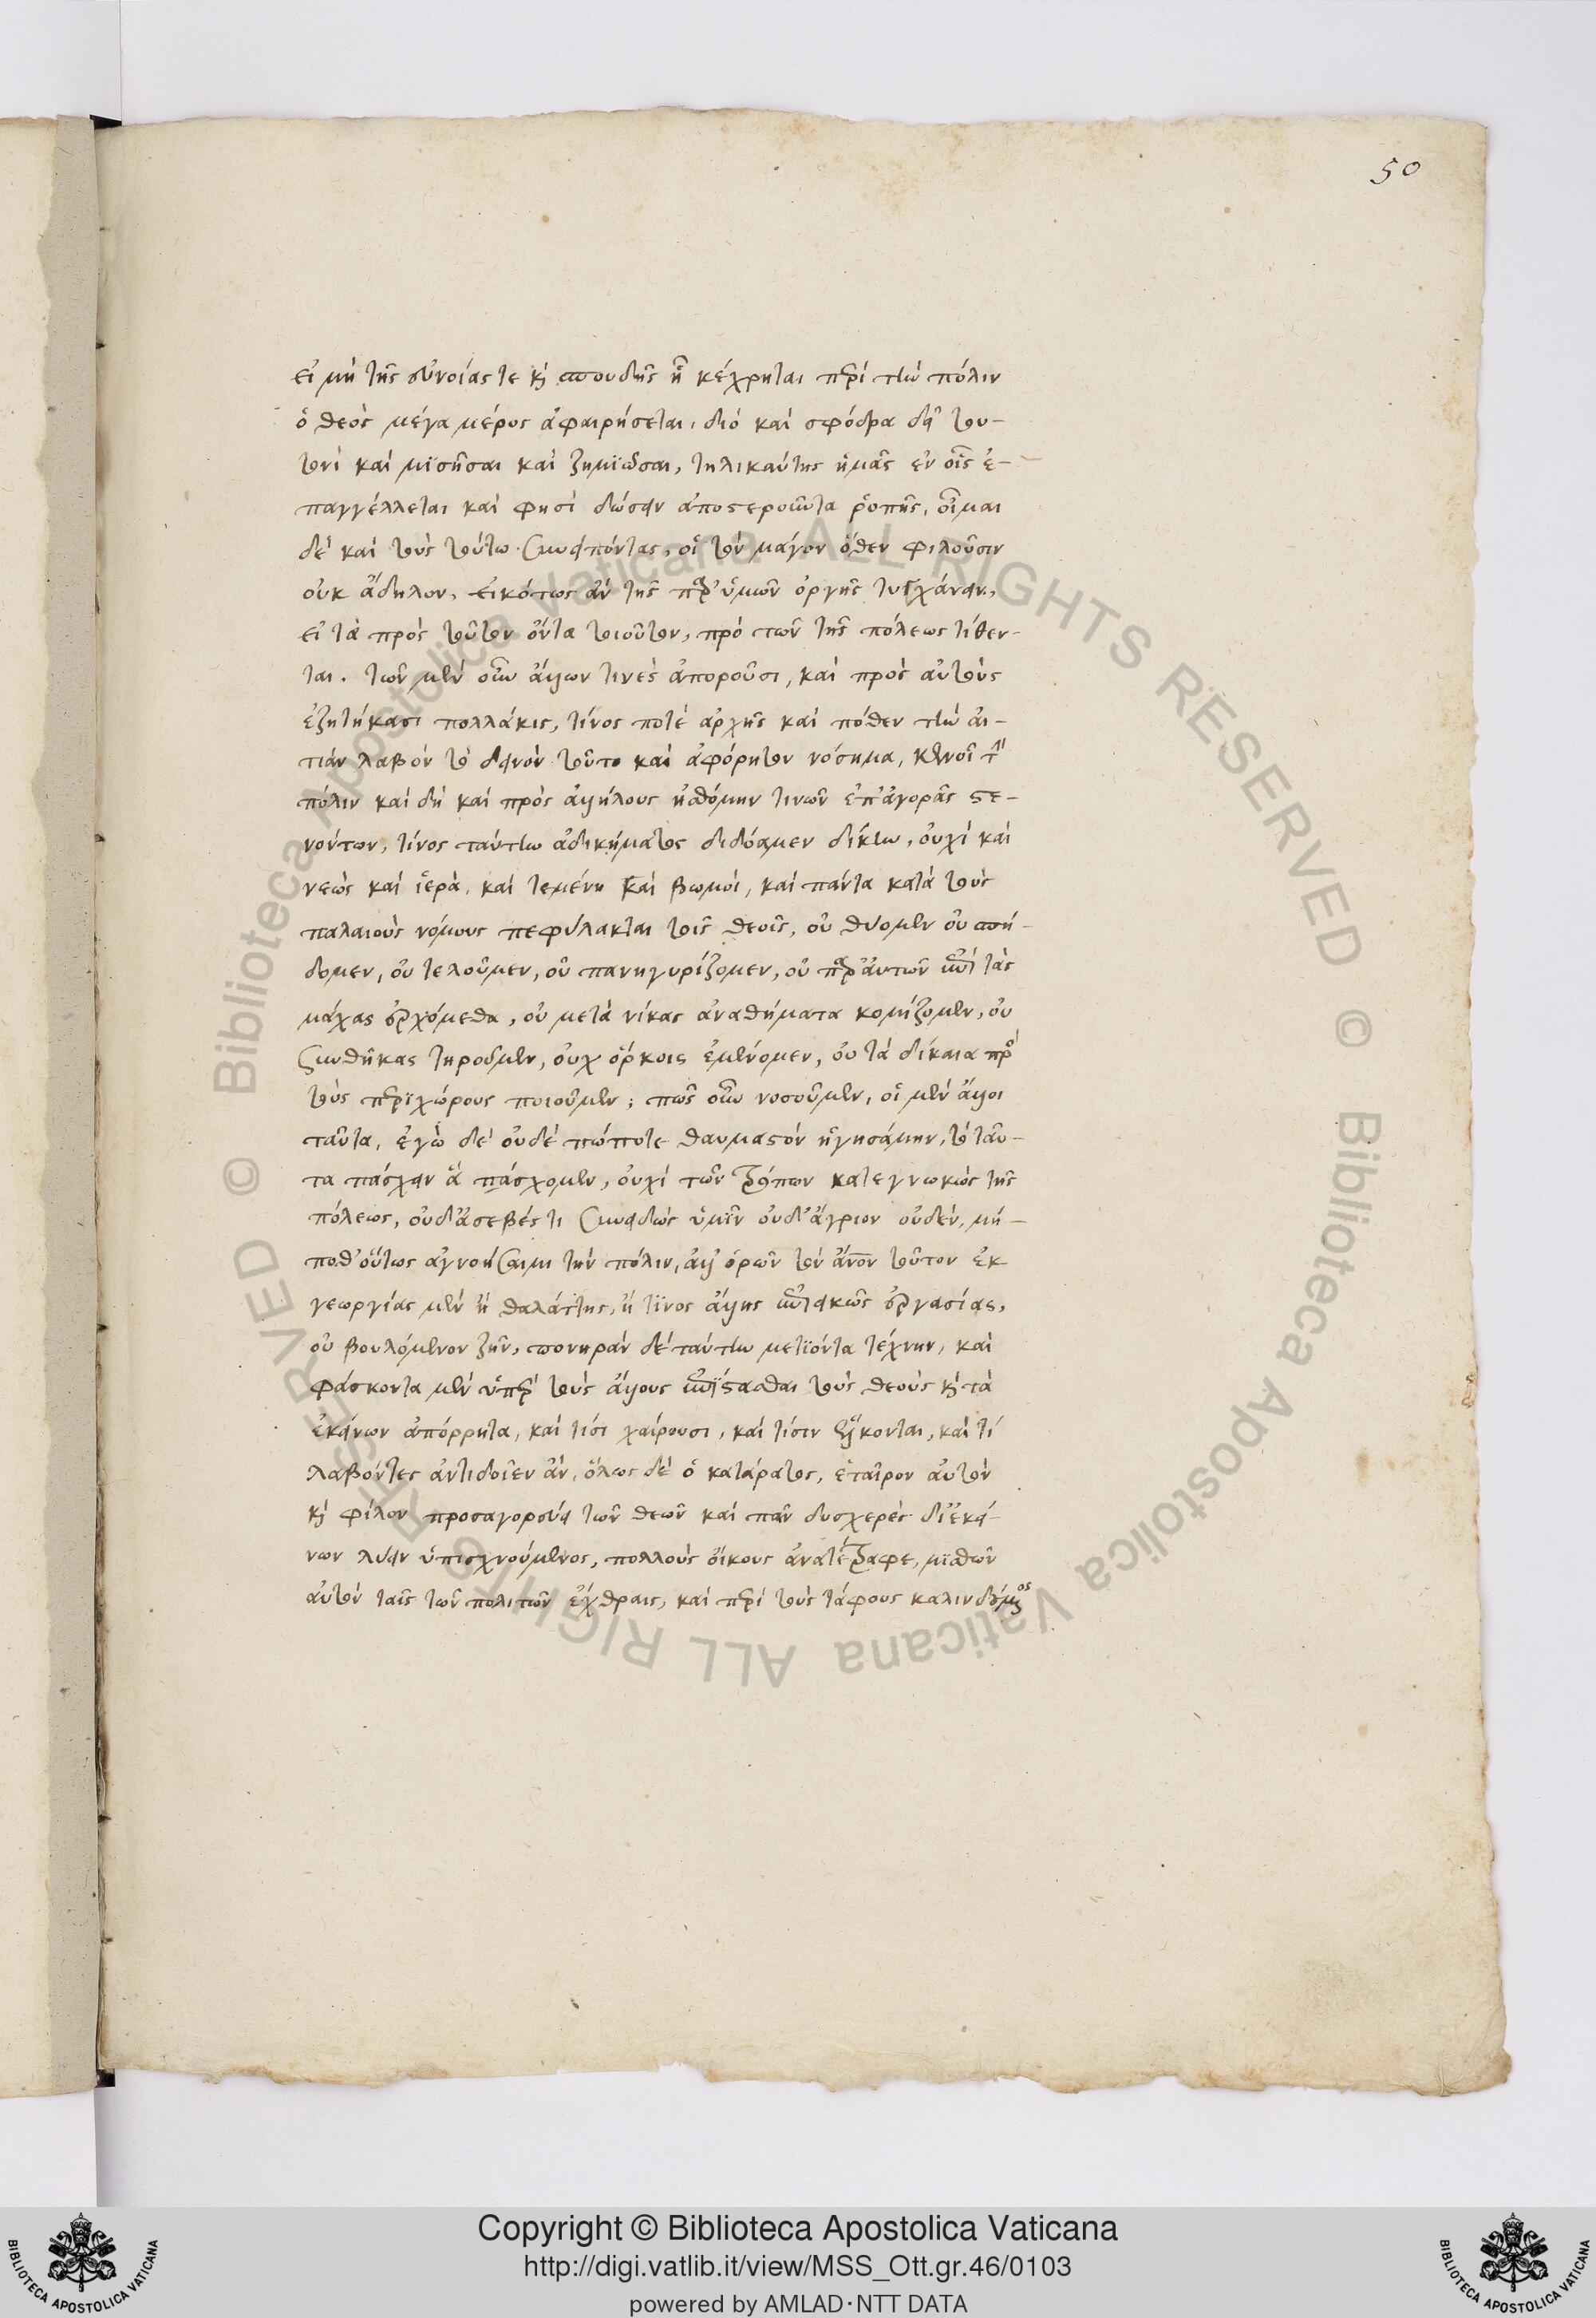 50
εἰ μὴ τῆς εὐνοίας τε καὶ σπουδῆς ᾗ κέχρηται περὶ τὴν πόλιν
ὁ θεὸς μέγα μέρος ἀφαιρήσεται, διὸ καὶ σφόδρα δεῖ του-
τονὶ καὶ μισῆσαι καὶ ζημιῶσαι, τηλικαύτης ἡμᾶς ἐν οἷς ἐ-
παγγέλλεται καὶ φησὶ δώσειν ἀποστεροῦντα ῥοπῆς, οἶμαι
δὲ καὶ τοὺς τούτω συνειπόντας, οἳ τὸν μάγον ὅθεν φιλοῦσιν
οὐκ ἄδηλον, εἰκότως ἂν τῆς παρ' ὑμῶν ὀργῆς τυγχάνειν,
εἰ τὰ πρὸς τοῦτον ὄντα τοιοῦτον, πρὸ τῶν τῆς πόλεως τίθεν-
ται. τῶν μὲν οὖν ἄλλων τινὲς ἀποροῦσι, καὶ πρὸς αὐτοὺς
ἐζητήκασι πολλάκις, τίνος ποτὲ ἀρχῆς καὶ πόθεν τὴν αἰ-
τιὰν λαβὸν τὸ δεινὸν τοῦτο καὶ ἀφόρητον νόσημα, κενοῖ τὴν
πόλιν καὶ δὴ καὶ πρὸς ἀλλήλους ᾐσθόμην τινῶν ἐπ' ἀγορᾶς στε-
νόντων, τίνος ταύτην ἀδικήματος διδόαμεν δίκην, οὐχὶ καὶ
νεὼς καὶ ἱερὰ, καὶ τεμένη καὶ βωμοὶ, καὶ πάντα κατὰ τοὺς
παλαιοὺς νόμους πεφύλακται τοῖς θεοῖς, οὐ θύομεν οὐ σπέν-
δομεν, οὐ τελοῦμεν, οὐ πανηγυρίζομεν, οὐ παρ' αὐτῶν ἐπὶ τὰς
μάχας ἐρχόμεθα, οὐ μετὰ νίκας ἀναθήματα κομίζομεν, οὐ
συνθήκας τηροῦμεν, οὐχ ὅρκοις ἐμμένομεν, οὐ τὰ δίκαια πρὸς
τοὺς περιχώρους ποιοῦμεν; πῶς οὖν νοσοῦμεν, οἱ μὲν ἄλλοι
ταῦτα, ἐγὼ δὲ οὐδὲ πώποτε θαυμαστὸν ἡγησάμην, τὸ ταῦ-
τα πάσχειν ἃ πάσχομεν, οὐχὶ τῶν τρόπων κατεγνωκὼς τῆς
πόλεως, οὐδ' ἀσεβές τι συνειδὼς ὑμῖν οὐδ' ἄγριον οὐδὲν, μή-
ποθ' οὕτως ἀγνοήσαιμι τὴν πόλιν, ἀλλ' ὁρῶν τὸν ἄνον τοῦτον ἐκ
γεωργίας μὲν ἢ θαλάττης, ἤ τινος ἄλλης ἐπιεικῶς ἐργασίας,
οὐ βουλόμενον ζῆν, πονηρὰν δὲ ταύτην μετιόντα τέχνην, καὶ
φάσκοντα μὲν ὑπὲρ τοὺς ἄλλους ἐπίστασθαι τοὺς θεοὺς καὶ τὰ
ἐκείνων ἀπόρρητα, καὶ τίσι χαίρουσι, καὶ τίσιν ἕλκονται, καὶ τί
λαβόντες ἀντιδοῖεν ἂν, ὅλως δὲ ὁ κατάρατος, ἑταῖρον αὐτὸν
καὶ φίλον προσαγορεύει τῶν θεῶν καὶ πᾶν δυσχερὲς δι' ἐκεί-
νων λύειν ὑπισχνούμενος, πολλοὺς οἴκους ἀνατέτραφε, μισθῶν
αὐτὸν ταῖς τῶν πολιτῶν ἔχθραις, καὶ περὶ τοὺς τάφους καλινδούμενος
Biblioteca Apostolica Vaticana ALL RIGHTS RESERVED ©
Biblioteca Apostolica Vaticana ALL RIGHTS RESERVED ©
BIBLIOTECA APOSTOLICA VATICANA
Copyright © Biblioteca Apostolica Vaticana
http://digi.vatlib.it/view/MSS_Ott.gr.46/0103
powered by AMLAD·NTT DATA
BIBLIOTECA APOSTOLICA VATICANA